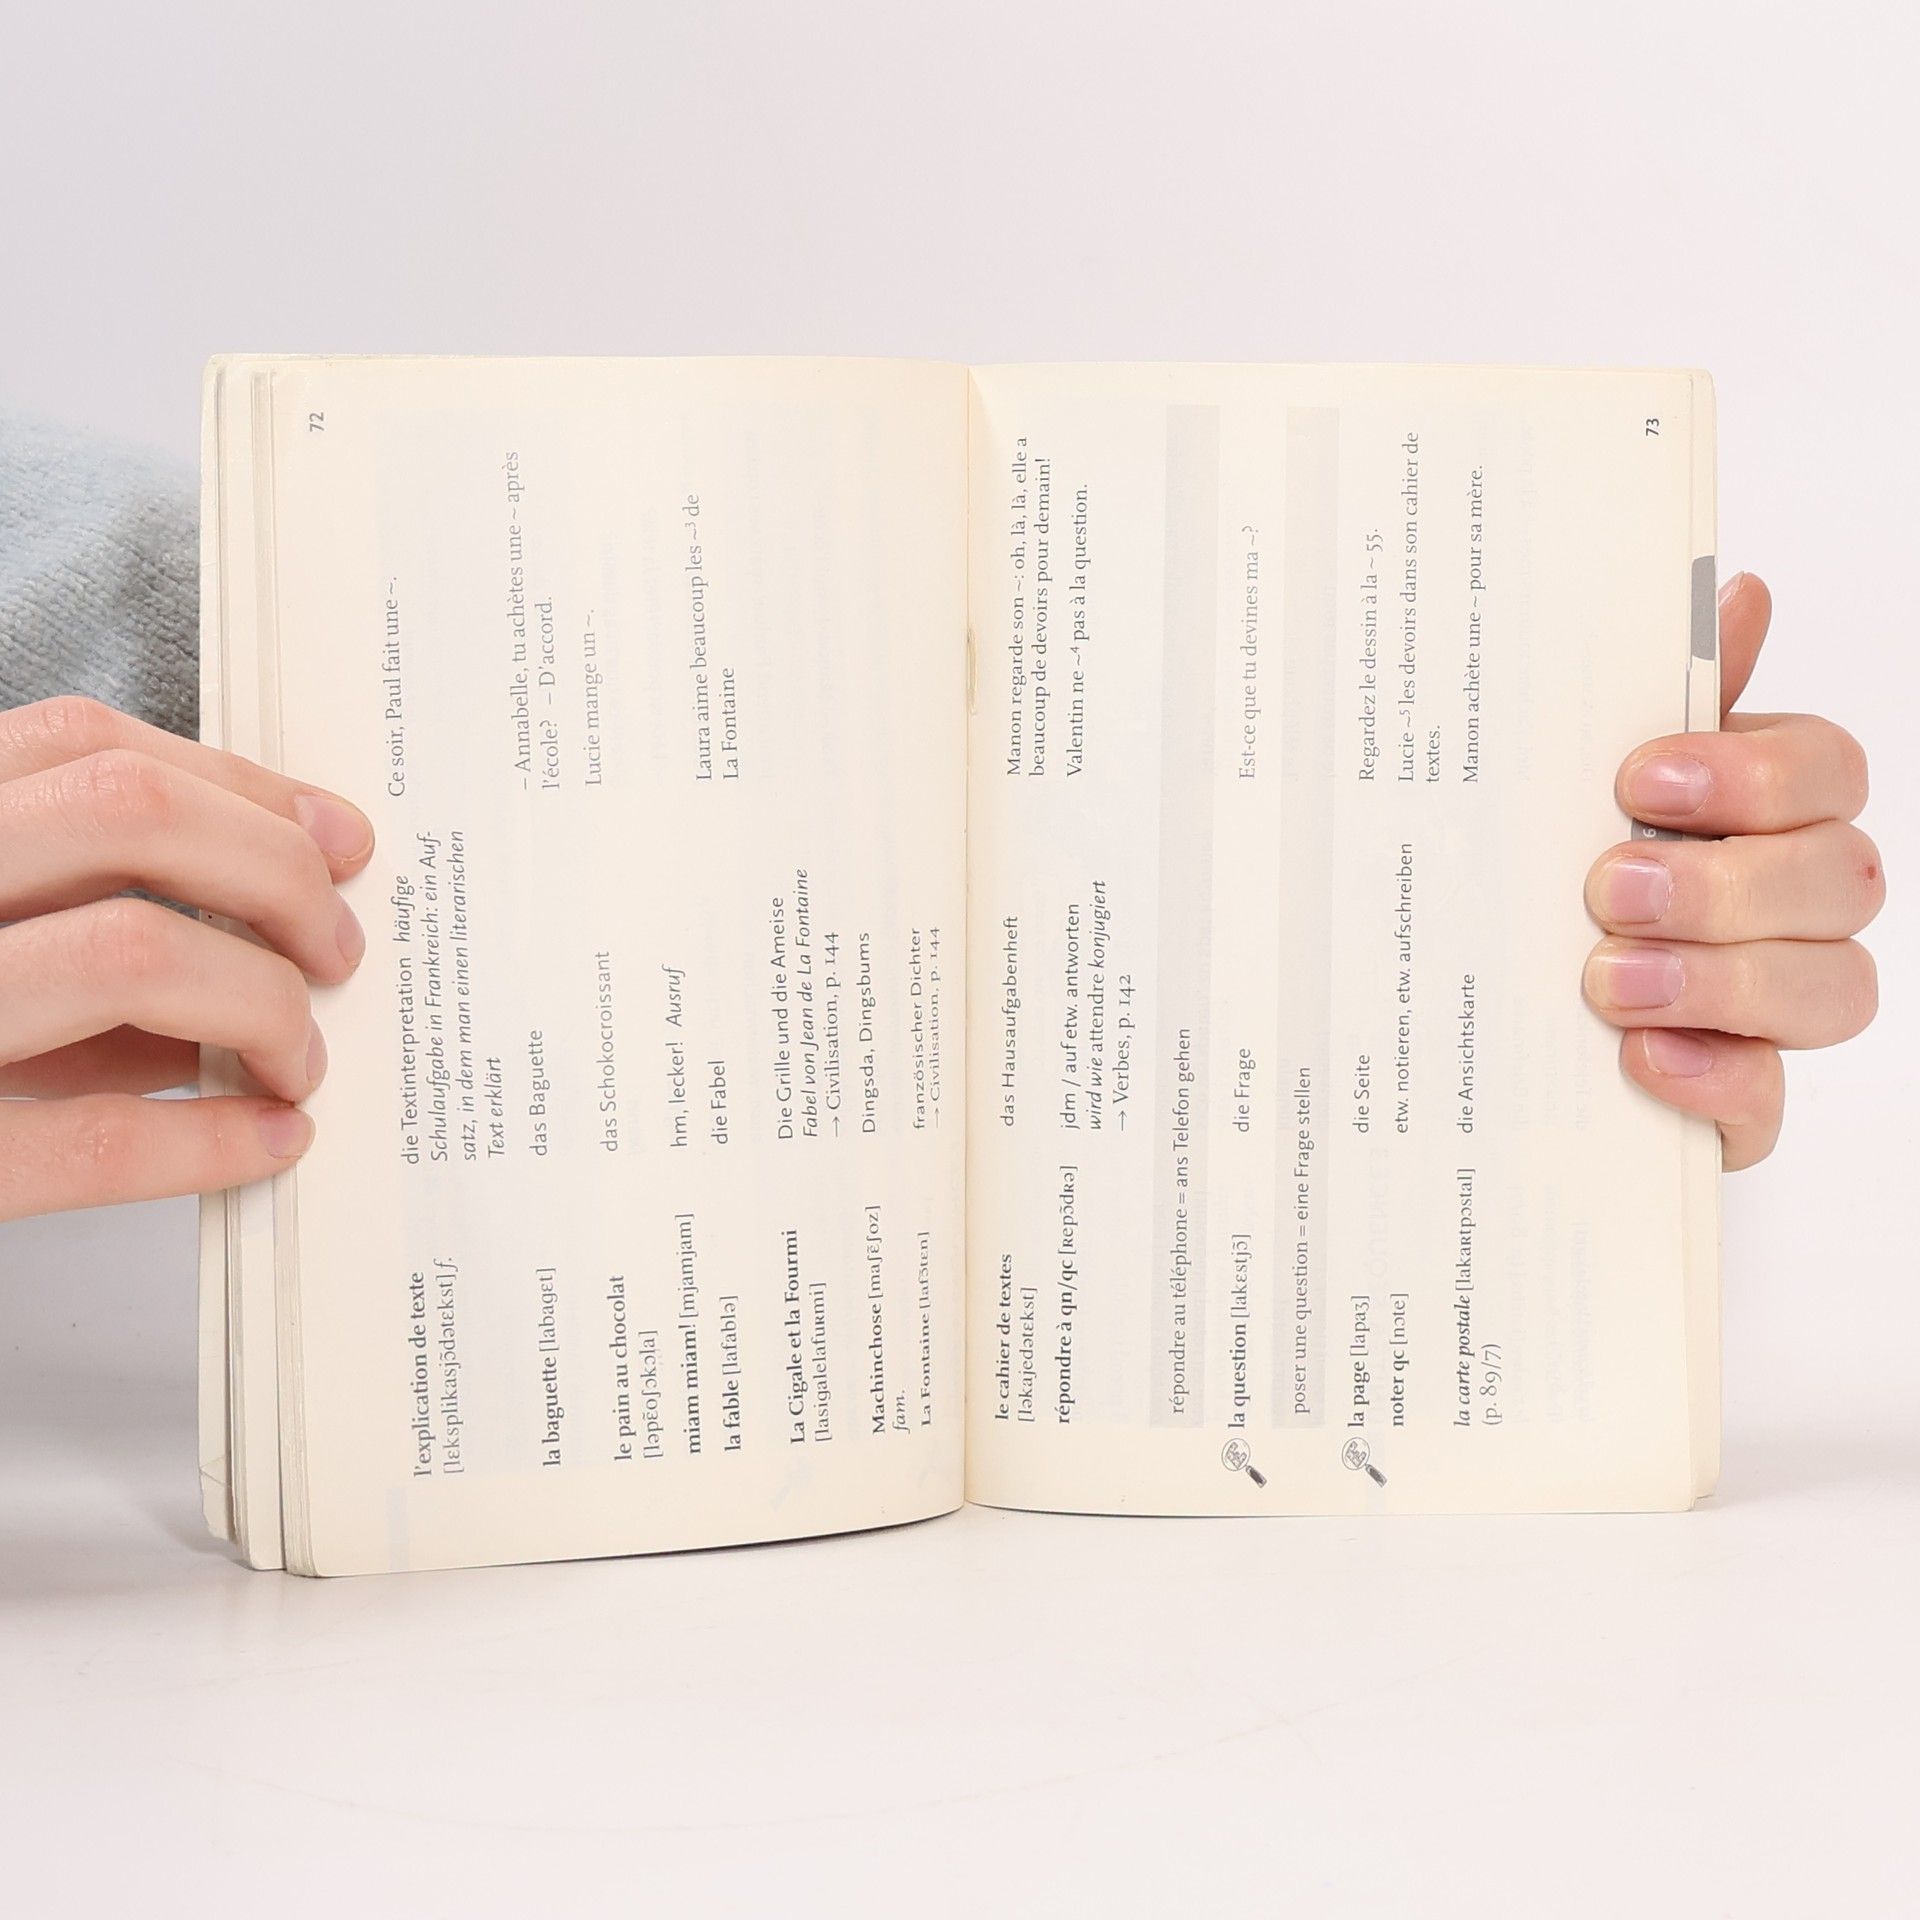 72
l'explication de texte
[lɛksplikasjɔ̃dətɛkst] f.
die Textinterpretation häufige
Schulaufgabe in Frankreich: ein Auf-
satz, in dem man einen literarischen
Text erklärt
Ce soir, Paul fait une ~.
la baguette [labagɛt]
das Baguette
– Annabelle, tu achètes une ~ après
l'école? – D'accord.
le pain au chocolat
[ləpɛ̃oʃɔkɔla]
das Schokocroissant
Lucie mange un ~.
miam miam! [mjamjam]
hm, lecker! Ausruf
la fable [lafablə]
die Fabel
Laura aime beaucoup les ~³ de
La Fontaine
La Cigale et la Fourmi
[lasigalelafuʀmi]
Die Grille und die Ameise
Fabel von Jean de La Fontaine
→ Civilisation, p. 144
Machinchose [maʃɛ̃ʃoz]
fam.
Dingsda, Dingsbums
La Fontaine [lafɔ̃tɛn]
französischer Dichter
→ Civilisation, p. 144
le cahier de textes
[ləkajedətɛkst]
das Hausaufgabenheft
Manon regarde son ~: oh, là, là, elle a
beaucoup de devoirs pour demain!
répondre à qn/qc [ʀepɔ̃dʀə]
jdm / auf etw. antworten
wird wie attendre konjugiert
→ Verbes, p. 142
Valentin ne ~⁴ pas à la question.
répondre au téléphone = ans Telefon gehen
la question [lakɛstjɔ̃]
die Frage
Est-ce que tu devines ma ~?
poser une question = eine Frage stellen
la page [lapaʒ]
die Seite
Regardez le dessin à la ~ 55.
noter qc [nɔte]
etw. notieren, etw. aufschreiben
Lucie ~⁵ les devoirs dans son cahier de
textes.
la carte postale [lakaʀtpɔstal]
(p. 89/7)
die Ansichtskarte
Manon achète une ~ pour sa mère.
73
6